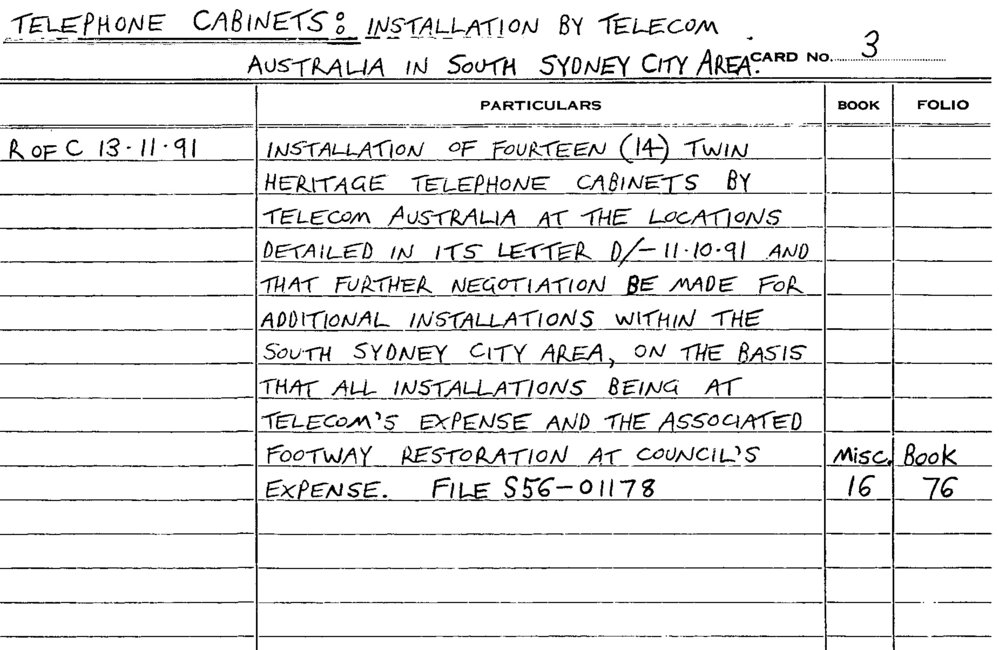 TELEPHONE CABINETS: INSTALLATION BY TELECOM
AUSTRALIA IN SOUTH SYDNEY CITY AREA. CARD No. 3
PARTICULARS BOOK FOLIO
R OF C 13·11·91 INSTALLATION OF FOURTEEN (14) TWIN
HERITAGE TELEPHONE CABINETS BY
TELECOM AUSTRALIA AT THE LOCATIONS
DETAILED IN ITS LETTER D/- 11·10·91 AND
THAT FURTHER NEGOTIATION BE MADE FOR
ADDITIONAL INSTALLATIONS WITHIN THE
SOUTH SYDNEY CITY AREA, ON THE BASIS
THAT ALL INSTALLATIONS BEING AT
TELECOM'S EXPENSE AND THE ASSOCIATED
FOOTWAY RESTORATION AT COUNCIL'S Misc. Book
EXPENSE. FILE S56-01178 16 76